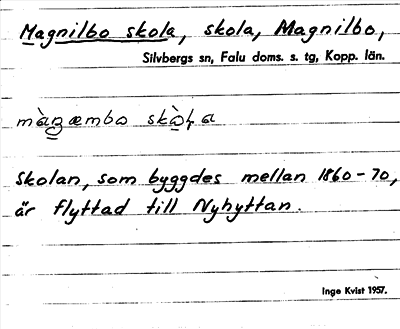 Magnilbo skola, skola, Magnilbo,
Silvbergs sn, Falu doms. s. tg, Kopp. län.
Skolan, som byggdes mellan 1860-70,
är flyttad till Nyhyttan.
Inge Kvist 1957.